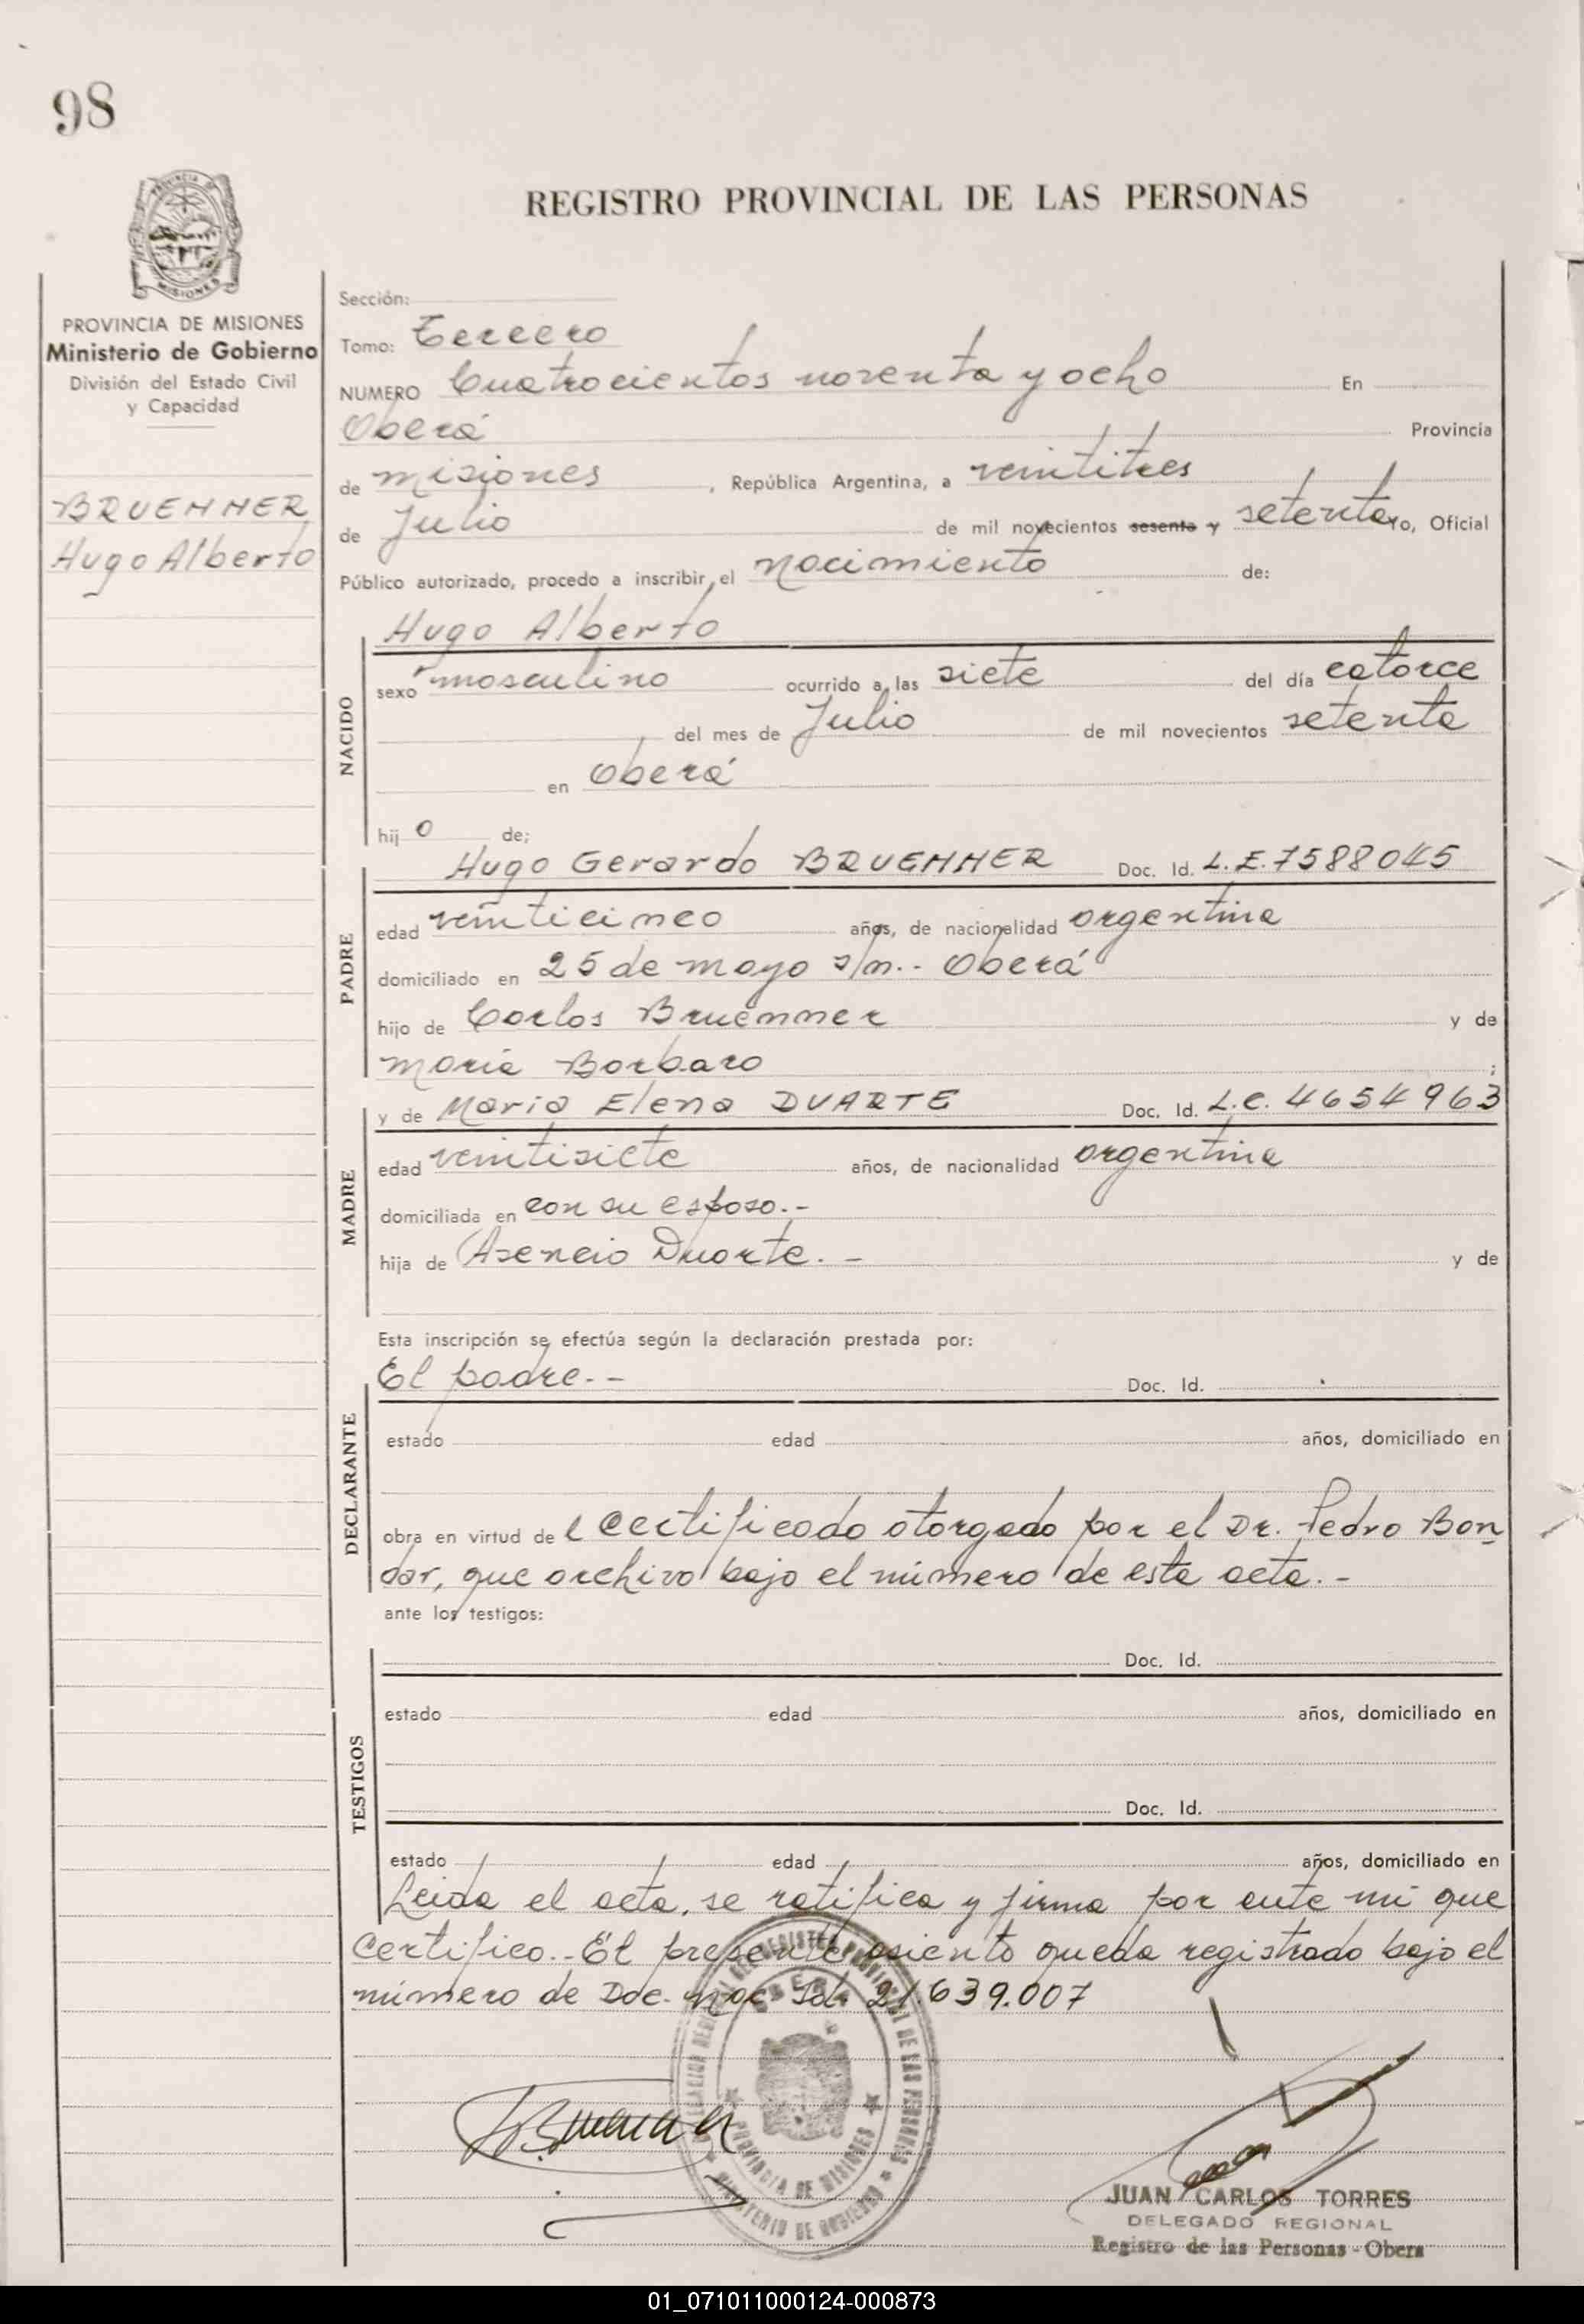 98
REGISTRO PROVINCIAL DE LAS PERSONAS
PROVINCIA DE MISIONES
Ministerio de Gobierno
División del Estado Civil
y Capacidad
BRUEMMER
Hugo Alberto
Sección:
Tomo: Tercero
NUMERO Cuatrocientos noventa y ocho En
Oberá Provincia
de misiones, República Argentina, a veintitres
de Julio de mil novecientos sesenta y setenta yo, Oficial
Público autorizado, procedo a inscribir el nacimiento de:
NACIDO
Hugo Alberto
sexo masculino ocurrido a las siete del día catorce
del mes de Julio de mil novecientos setenta
en Oberá
hijo de;
PADRE
Hugo Gerardo BRUEMMER Doc. Id. L.E. 7588045
edad veinticinco años, de nacionalidad argentina
domiciliado en 25 de mayo s/n.- Oberá
hijo de Carlos Bruemmer y de
maria Barbaro ;
MADRE
y de Maria Elena DUARTE Doc. Id. L.C. 4654963
edad veintisiete años, de nacionalidad argentina
domiciliada en con su esposo.-
hija de Asencio Duarte.- y de
DECLARANTE
Esta inscripción se efectúa según la declaración prestada por:
El padre.- Doc. Id.
estado edad años, domiciliado en
obra en virtud del certificado otorgado por el Dr. Pedro Bon
dar, que archivo bajo el número de esta acta.-
ante los testigos:
TESTIGOS
Doc. Id.
estado edad años, domiciliado en
Doc. Id.
estado edad años, domiciliado en
Leida el acta, se ratifica y firma por ante mi que
certifico.- El presente asiento queda registrado bajo el
número de Doc. Nac. Id. 21.639.007
PROVINCIA DE MISIONES
MINISTERIO DE GOBIERNO
JUAN CARLOS TORRES
DELEGADO REGIONAL
Registro de las Personas - Obera
01_071011000124-000873